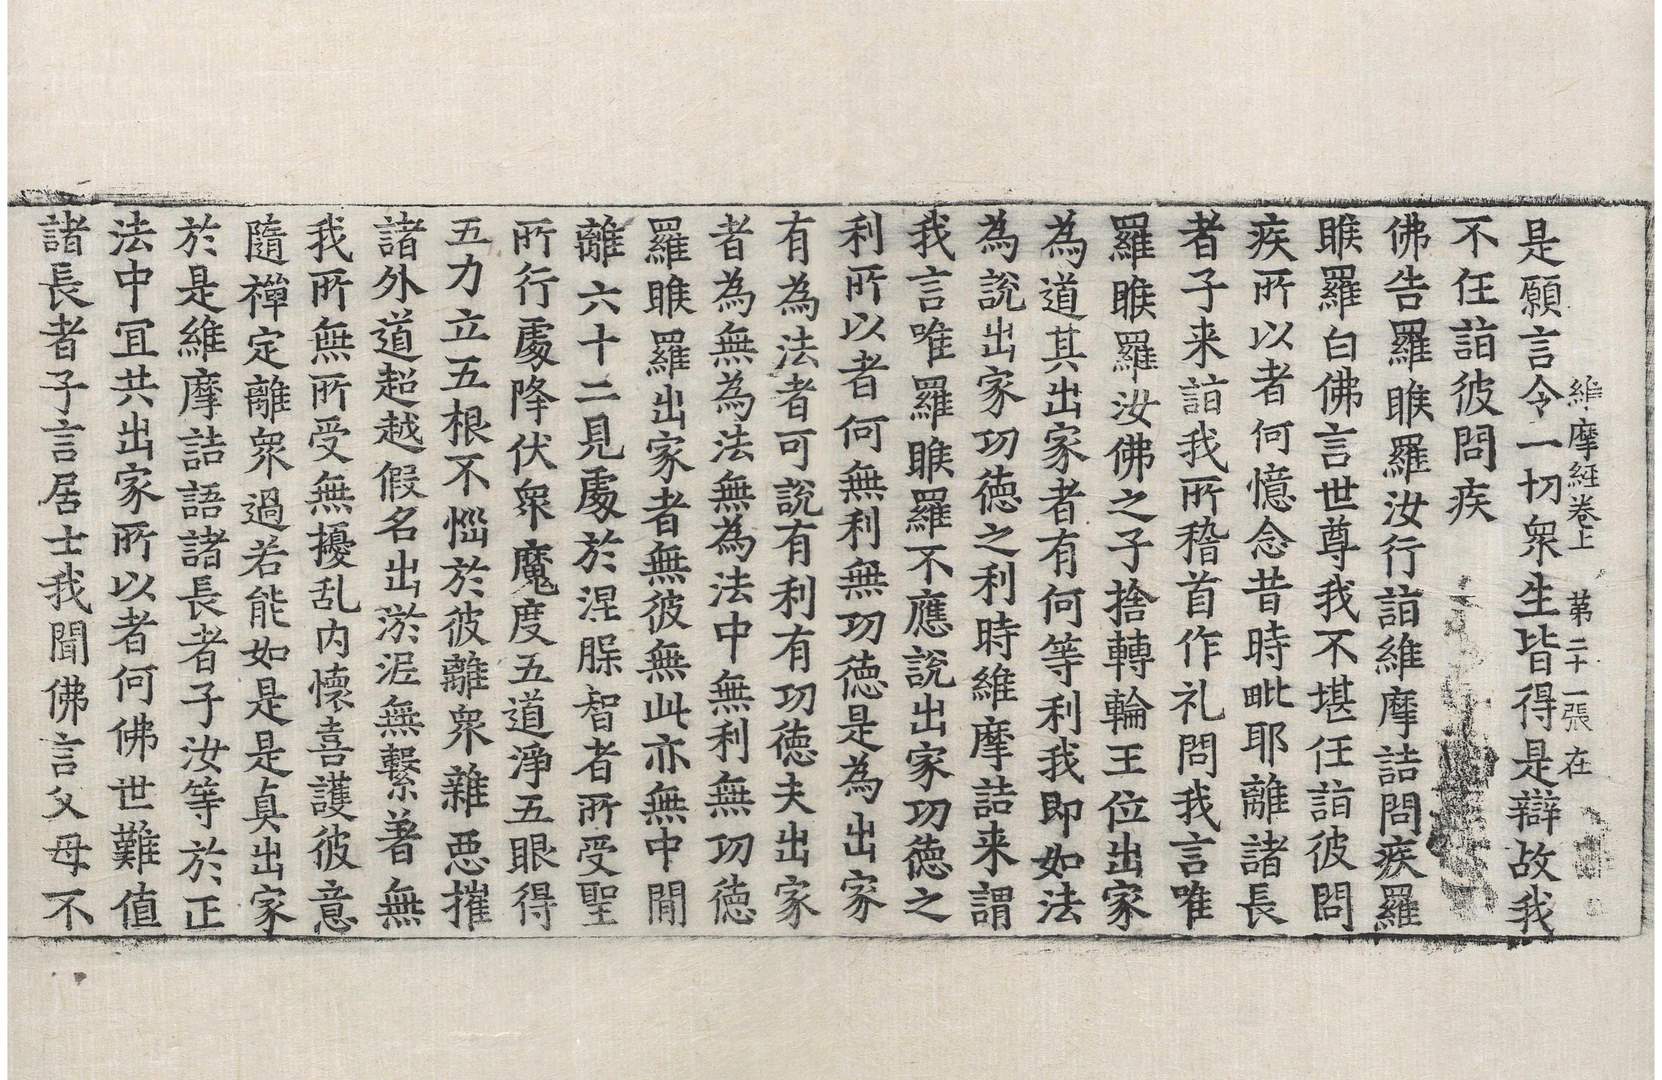 維摩経卷上 第二十一張 在
是願言令一切衆生皆得是辯故我
不任詣彼問疾
佛告羅睺羅汝行詣維摩詰問疾羅
睺羅白佛言世尊我不堪任詣彼問
疾所以者何憶念昔時毗耶離諸長
者子来詣我所稽首作礼問我言唯
羅睺羅汝佛之子捨轉輪王位出家
為道其出家者有何等利我即如法
為說出家功徳之利時維摩詰来謂
我言唯羅睺羅不應說出家功徳之
利所以者何無利無功徳是為出家
有為法者可說有利有功徳夫出家
者為無為法無為法中無利無功徳
羅睺羅出家者無彼無此亦無中間
離六十二見處於涅槃智者所受聖
所行處降伏衆魔度五道淨五眼得
五力立五根不惱於彼離衆雜惡摧
諸外道超越假名出淤泥無繫著無
我所無所受無擾乱内懷喜護彼意
隨禪定離衆過若能如是是真出家
於是維摩詰語諸長者子汝等於正
法中宜共出家所以者何佛世難值
諸長者子言居士我聞佛言父母不